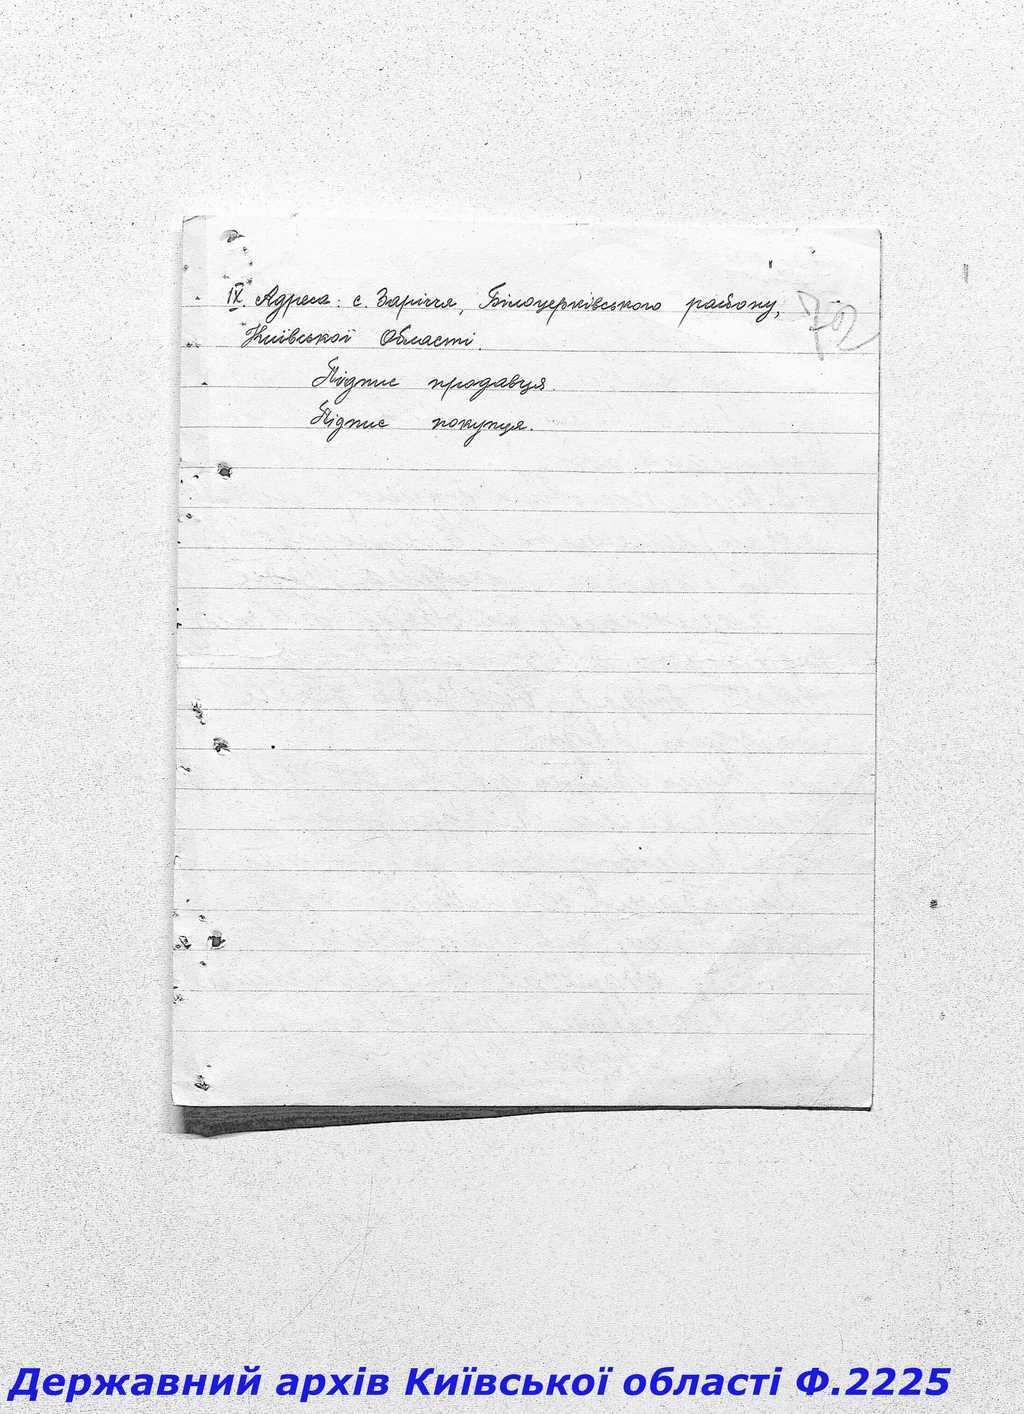 IX. Адреса: с. Заріччя, Білоцерківського району,
72
Київської Області.
Підпис продавця.
Підпис покупця.
Державний архів Київської області Ф.2225